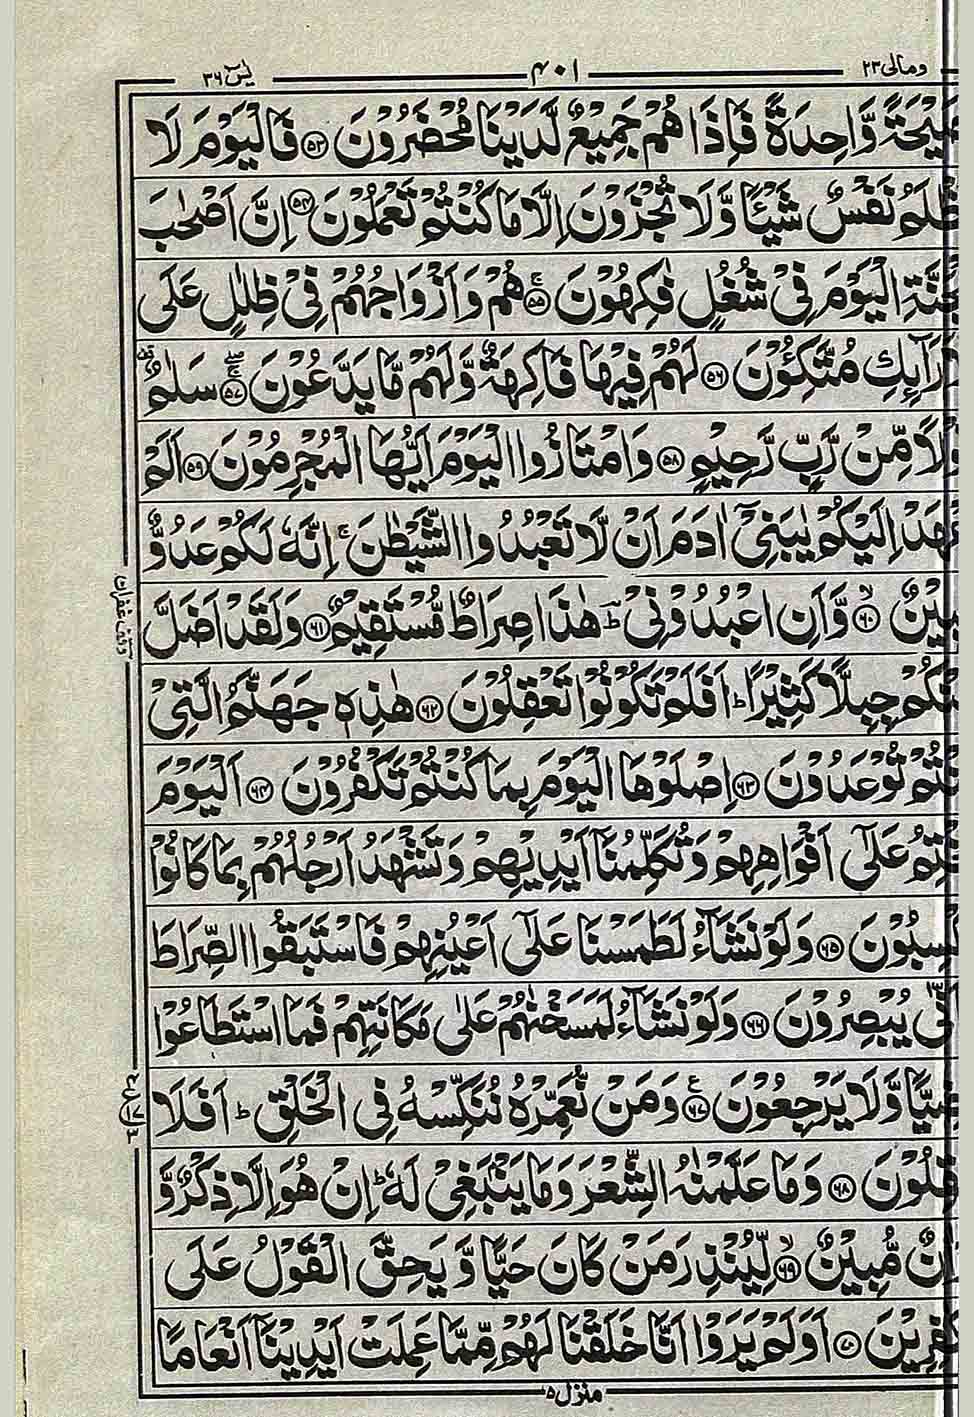 ومالی ٢٣ ٤٠١ یٰسٓ ٣٦
وَّاحِدَةً فَاِذَا هُمْ جَمِيْعٌ لَّدَيْنَا مُحْضَرُوْنَ ﴿٥٣﴾ فَالْيَوْمَ لَا
نَفْسٌ شَيْـًٔا وَّلَا تُجْزَوْنَ اِلَّا مَا كُنْتُمْ تَعْمَلُوْنَ ﴿٥٤﴾ اِنَّ اَصْحٰبَ
الْيَوْمَ فِيْ شُغُلٍ فٰكِهُوْنَ ﴿٥٥﴾ۚ هُمْ وَاَزْوَاجُهُمْ فِيْ ظِلٰلٍ عَلَى
مُتَّكِـُٔوْنَ ﴿٥٦﴾ لَهُمْ فِيْهَا فَاكِهَةٌ وَّلَهُمْ مَّا يَدَّعُوْنَ ﴿٥٧﴾ سَلٰمٌ
مِّنْ رَّبٍّ رَّحِيْمٍ ﴿٥٨﴾ وَامْتَازُوا الْيَوْمَ اَيُّهَا الْمُجْرِمُوْنَ ﴿٥٩﴾ اَلَمْ
اِلَيْكُمْ يٰبَنِيْٓ اٰدَمَ اَنْ لَّا تَعْبُدُوا الشَّيْطٰنَ ۚ اِنَّهٗ لَكُمْ عَدُوٌّ
﴿٦٠﴾ۙ وَّاَنِ اعْبُدُوْنِيْ ؕ هٰذَا صِرَاطٌ مُّسْتَقِيْمٌ ﴿٦١﴾ وَلَقَدْ اَضَلَّ
جِبِلًّا كَثِيْرًا ؕ اَفَلَمْ تَكُوْنُوْا تَعْقِلُوْنَ ﴿٦٢﴾ هٰذِهٖ جَهَنَّمُ الَّتِيْ
تُوْعَدُوْنَ ﴿٦٣﴾ اِصْلَوْهَا الْيَوْمَ بِمَا كُنْتُمْ تَكْفُرُوْنَ ﴿٦٤﴾ اَلْيَوْمَ
عَلٰٓى اَفْوَاهِهِمْ وَتُكَلِّمُنَآ اَيْدِيْهِمْ وَتَشْهَدُ اَرْجُلُهُمْ بِمَا كَانُوْا
﴿٦٥﴾ وَلَوْ نَشَآءُ لَطَمَسْنَا عَلٰٓى اَعْيُنِهِمْ فَاسْتَبَقُوا الصِّرَاطَ
يُبْصِرُوْنَ ﴿٦٦﴾ وَلَوْ نَشَآءُ لَمَسَخْنٰهُمْ عَلٰى مَكَانَتِهِمْ فَمَا اسْتَطَاعُوْا
وَّلَا يَرْجِعُوْنَ ﴿٦٧﴾ وَمَنْ نُّعَمِّرْهُ نُنَكِّسْهُ فِي الْخَلْقِ ؕ اَفَلَا
﴿٦٨﴾ وَمَا عَلَّمْنٰهُ الشِّعْرَ وَمَا يَنْۢبَغِيْ لَهٗ ؕ اِنْ هُوَ اِلَّا ذِكْرٌ وَّ
مُّبِيْنٌ ﴿٦٩﴾ۙ لِّيُنْذِرَ مَنْ كَانَ حَيًّا وَّيَحِقَّ الْقَوْلُ عَلَى
﴿٧٠﴾ اَوَلَمْ يَرَوْا اَنَّا خَلَقْنَا لَهُمْ مِّمَّا عَمِلَتْ اَيْدِيْنَآ اَنْعَامًا
منزل ٥